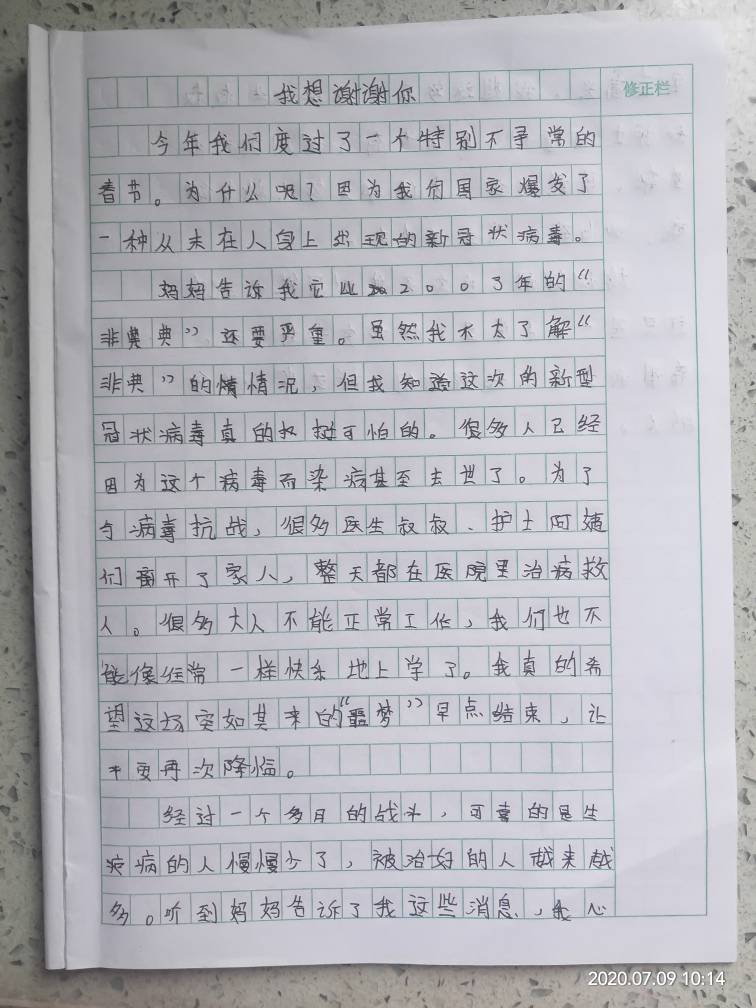 我想谢谢你
修正栏
今年我们度过了一个特别不寻常的
春节。为什么呢?因为我们国家爆发了
一种从未在人身上出现的新冠状病毒。
妈妈告诉我它比2003年的“
非典”还要严重。虽然我不太了解“
非典”的情况,但我知道这次的新型
冠状病毒真的挺可怕的。很多人已经
因为这个病毒而染病甚至去世了。为了
与病毒抗战,很多医生叔叔、护士阿姨
们离开了家人,整天都在医院里治病救
人。很多大人不能正常工作,我们也不
能像往常一样快乐地上学了。我真的希
望这场突如其来的“噩梦”早点结束,让
不要再次降临。
经过一个多月的战斗,可喜的是生
疫病的人慢慢少了,被治好的人越来越
多。听到妈妈告诉了我这些消息,我心
2020.07.09 10:14